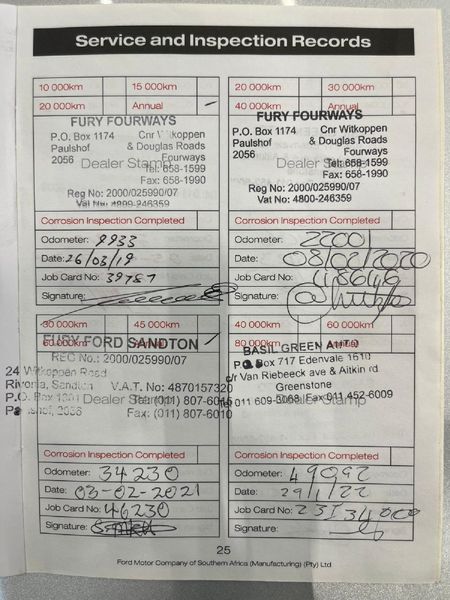 Service and Inspection Records
10 000km 15 000km
20 000km Annual
FURY FOURWAYS
P.O. Box 1174 Cnr Witkoppen
Paulshof & Douglas Roads
2056 Fourways
Dealer Stamp
Tel: 658-1599
Fax: 658-1990
Reg No: 2000/025990/07
Vat No: 4800-246359
Corrosion Inspection Completed
Odometer: 9933
Date: 26/03/19
Job Card No: 39787
Signature:
20 000km 30 000km
40 000km Annual
FURY FOURWAYS
P.O. Box 1174 Cnr Witkoppen
Paulshof & Douglas Roads
2056 Fourways
Dealer Stamp
Tel: 658-1599
Fax: 658-1990
Reg No: 2000/025990/07
Vat No: 4800-246359
Corrosion Inspection Completed
Odometer: 22001
Date: 08/02/2020
Job Card No:
Signature:
30 000km 45 000km
60 000km Annual
FURY FORD SANDTON
REG No.: 2000/025990/07
24 Witkoppen Road
Rivonia, Sandton V.A.T. No: 4870157320
P.O. Box Dealer Stamp Tel: (011) 807-6045
Paulshof, 2056 Fax: (011) 807-6010
Corrosion Inspection Completed
Odometer: 34230
Date: 03-02-2021
Job Card No: 46230
Signature:
40 000km 60 000km
80 000km Annual
BASIL GREEN AUTO
P.O. Box 717 Edenvale 1610
c/r Van Riebeeck ave & Aitkin rd
Greenstone
Tel 011 609-5068 Fax 011 452-6009
Dealer Stamp
Corrosion Inspection Completed
Odometer: 49092
Date: 29/1/22
Job Card No:
Signature:
25
Ford Motor Company of Southern Africa (Manufacturing) (Pty) Ltd